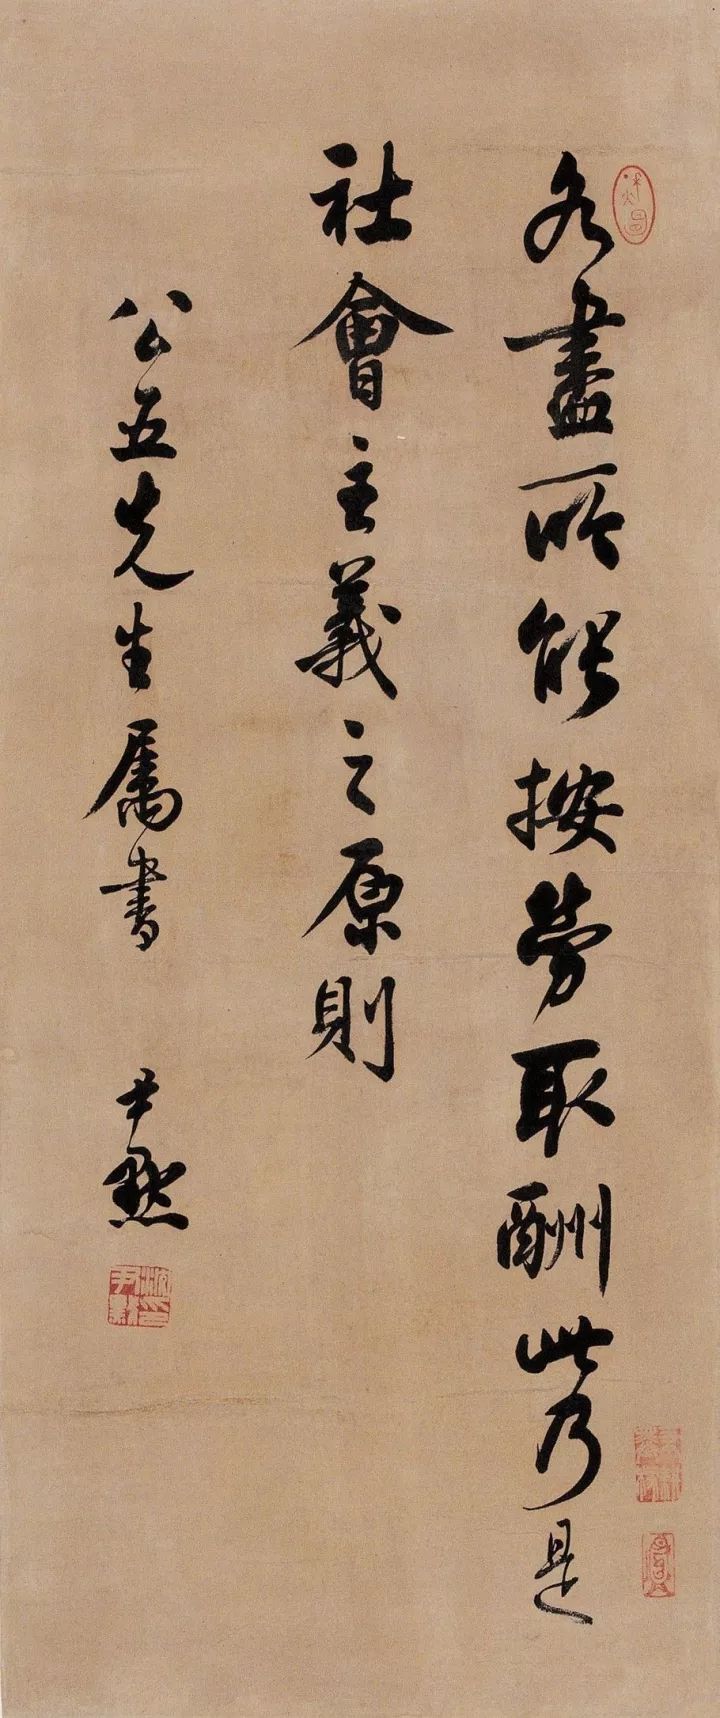 各盡所能按勞取酬此乃是
社會主義之原則
公五先生属書 尹默
沈尹默印